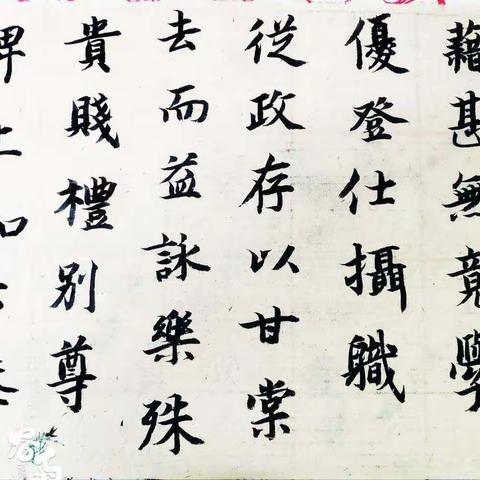 藉甚無竟學
優登仕攝職
從政存以甘棠
去而益詠樂殊
貴賤禮別尊
卑上和下睦